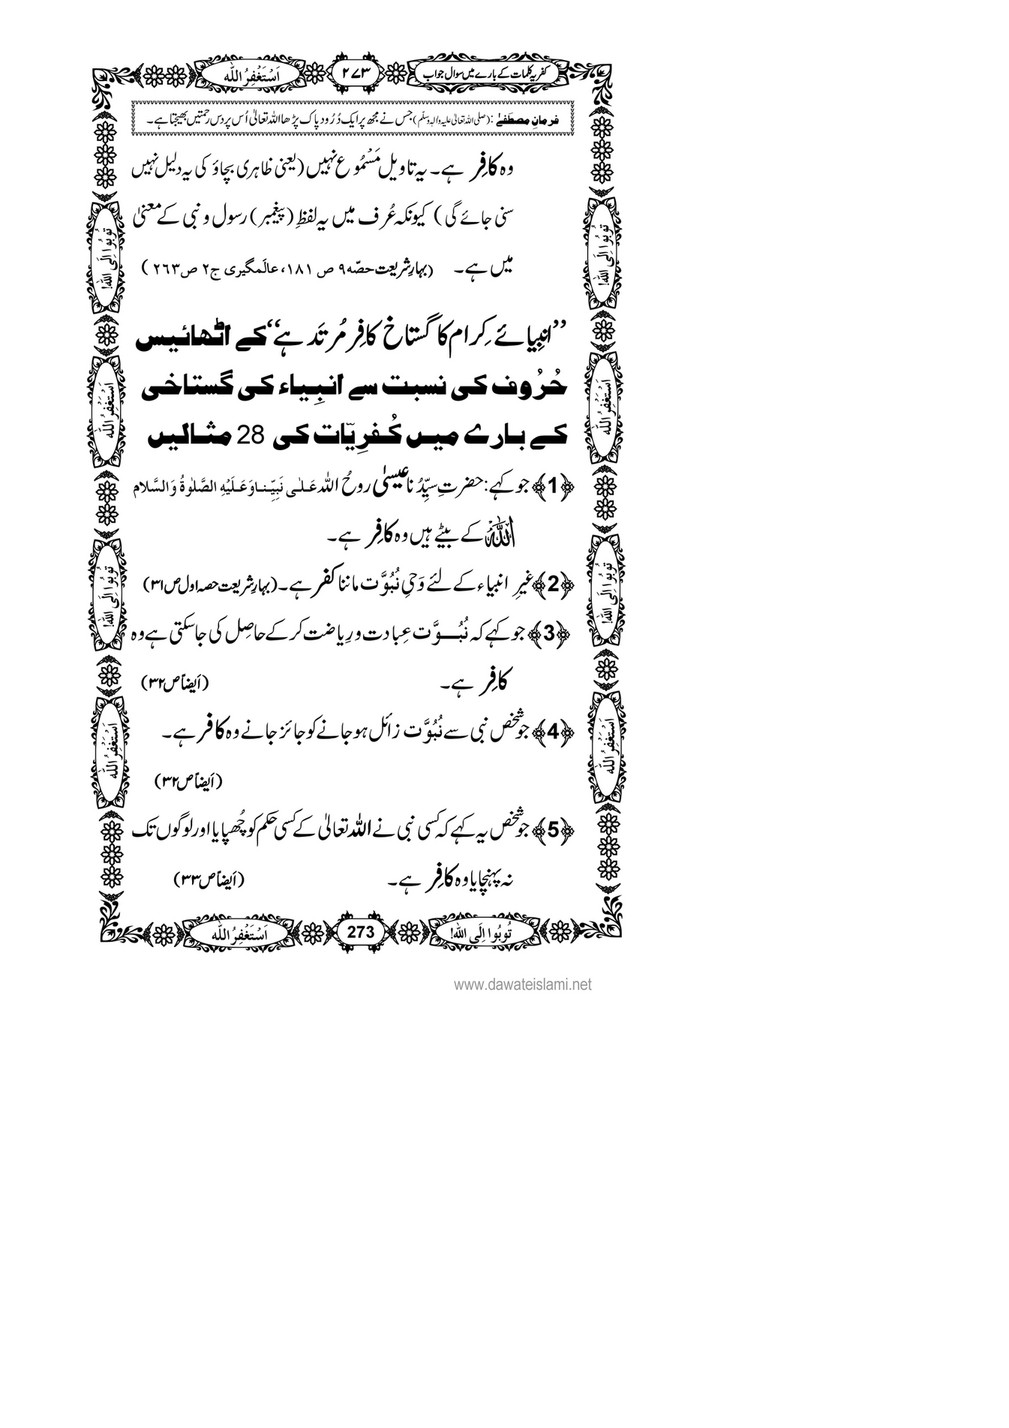 کفریہ کلمات کے بارے میں سوال جواب
۲۷۳
اَسْتَغْفِرُاللّٰه
فرمانِ مصطَفےٰ :(صلی اللہ تعالیٰ علیہ والہ وسلّم) جس نے مجھ پر ایک دُرُود پاک پڑھا اللہ تعالیٰ اُس پر دس رحمتیں بھیجتا ہے۔
وہ کافِر ہے۔ یہ تاویل مَسْمُوع نہیں (یعنی ظاہری بچاؤ کی یہ دلیل نہیں
سنی جائے گی) کیونکہ عُرف میں یہ لفظِ (پیغمبر) رسول و نبی کے معنیٰ
میں ہے۔ (بہارِ شریعت حصّہ ۹ ص ۱۸۱، عالمگیری ج ۲ ص ۲۶۳)
’’انبِیائے کِرام کا گستاخ کافِر مُرتَد ہے‘‘ کے اٹھائیس
حُرُوف کی نسبت سے انبِیاء کی گستاخی
کے بارے میں کُفرِیّات کی 28 مثالیں
﴿1﴾ جو کہے: حضرتِ سیِّدُنا عیسیٰ روحُ اللہ عَلٰی نَبِیِّنا وَعَلَیْہِ الصَّلٰوۃُ وَالسَّلَام
اللہ کے بیٹے ہیں وہ کافِر ہے۔
﴿2﴾ غیرِ انبیاء کے لئے وَحیِ نُبُوَّت ماننا کفر ہے۔ (بہارِ شریعت حصہ اول ص ۳۱)
﴿3﴾ جو کہے کہ نُبُوَّت عِبادت و رِیاضت کر کے حاصِل کی جا سکتی ہے وہ
کافِر ہے۔ (اَیضاً ص ۳۲)
﴿4﴾ جو شخص نبی سے نُبُوَّت زائل ہو جانے کو جائز جانے وہ کافر ہے۔
(اَیضاً ص ۳۲)
﴿5﴾ جو شخص یہ کہے کہ کسی نبی نے اللہ تعالیٰ کے کسی حکم کو چُھپایا اور لوگوں تک
نہ پہنچایا وہ کافِر ہے۔ (اَیضاً ص ۳۳)
تُوبُوا اِلَی اللّٰه!
اَسْتَغْفِرُاللّٰه
تُوبُوا اِلَی اللّٰه!
اَسْتَغْفِرُاللّٰه
تُوبُوا اِلَی اللّٰه!
اَسْتَغْفِرُاللّٰه
تُوبُوا اِلَی اللّٰه!
اَسْتَغْفِرُاللّٰه
تُوبُوا اِلَی اللّٰه!
273
اَسْتَغْفِرُاللّٰه
www.dawateislami.net